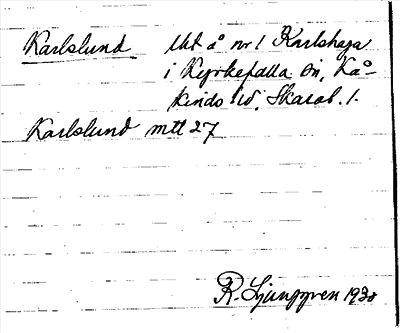 Karlslund Ut å nr 1 Karlshaga
i Kyrkefalla sn, Kå-
kinds hd, Skarab. l.
Karlslund mtl 27
R. Ljunggren 1930